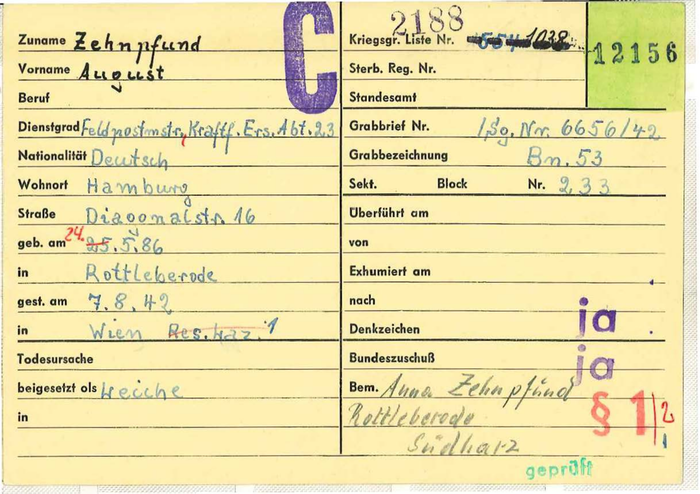 Zuname Zehnpfund
Vorname August
Beruf
Dienstgrad Feldpostmstr, Kraftf. Ers. Abt. 23
Nationalität Deutsch
Wohnort Hamburg
Straße Diagonalstr. 16
geb. am 24. 25.5.86
in Rottleberode
gest. am 7.8.42
in Wien Res. Laz. 1
Todesursache
beigesetzt als Leiche
in
C
2188
Kriegsgr. Liste Nr. 1038
12156
Sterb. Reg. Nr.
Standesamt
Grabbrief Nr. 1,Sg. Nr. 6656/42
Grabbezeichnung Bn. 53
Sekt. Block Nr. 233
Überführt am
von
Exhumiert am
nach
Denkzeichen ja
Bundeszuschuß ja
Bem. Anna Zehnpfund
Rottleberode
Südharz
§ 1/2
1
geprüft